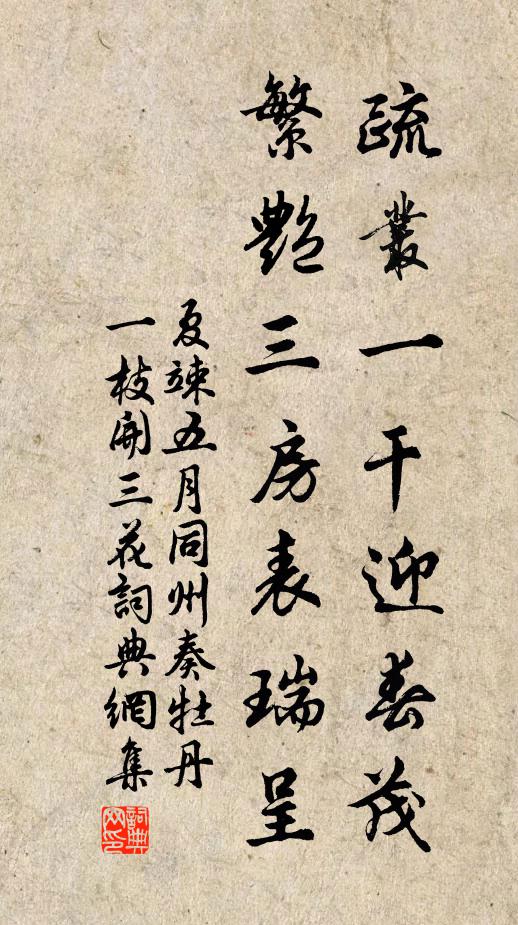 疏叢一干迎春茂
繁艷三房表瑞呈
夏竦五月同州奏牡丹
一枝開三花詞典網集
詞典網印